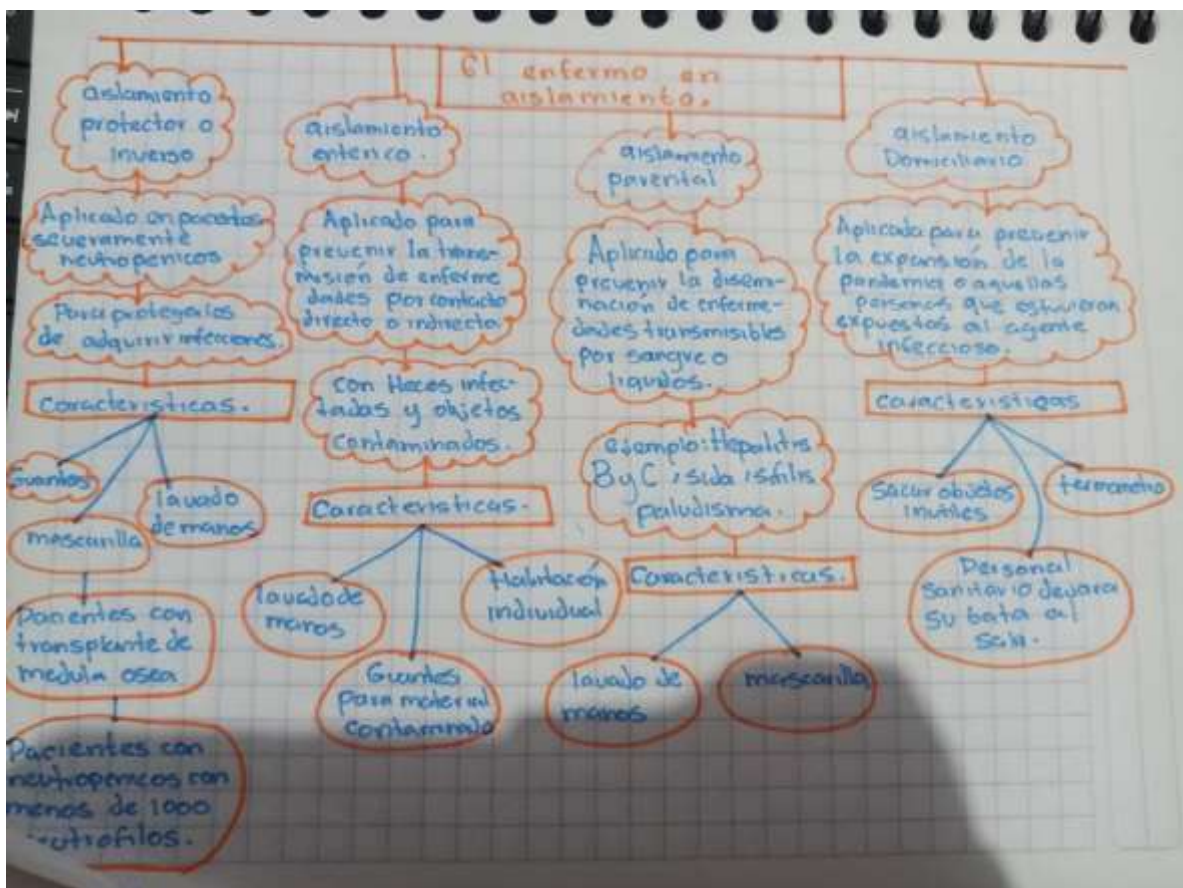 El enfermo en
aislamiento.
aislamiento
protector o
inverso
Aplicado en pacientes
severamente
neutropenicos
Para protegerlos
de adquirir infecciones.
Caracteristicas.
Guantes
mascarilla
lavado
de manos
Pacientes con
transplante de
medula osea
Pacientes con
neutropenicos con
menos de 1000
neutrofilos.
aislamiento
enterico.
Aplicado para
prevenir la trans-
misión de enferme
dades por contacto
directo o indirecto
con Heces infec-
tadas y objetos
contaminados.
Caracteristicas.
lavado de
manos
Guantes
para material
contaminado
Habitación
individual
aislamento
parental
Aplicado para
prevenir la disemi-
nación de enferme-
dades transmisibles
por sangre o
liquidos.
ejemplo: Hepatitis
B y C, sida, sifilis
paludismo.
Caracteristicas.
lavado de
manos
mascarilla
aislamiento
Domiciliario
Aplicado para prevenir
la expansión de la
pandemia o aquellas
personas que estuvieron
expuestos al agente
infeccioso.
Caracteristicas
Sacar objetos
inutiles
Personal
Sanitario dejara
su bata al
salir.